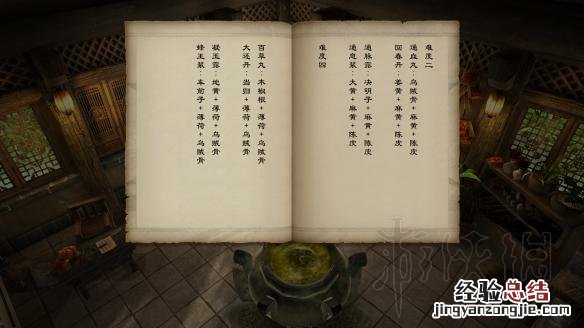 难度二
通血丸：乌贼骨+麻黄+陈皮
回春丹：茶黄+麻黄+陈皮
通脉露：决明子+麻黄+陈皮
通息浆：大黄+麻黄+陈皮
难度四
百草丸：木椒根+薄荷+乌贼骨
大还丹：当归+薄荷+乌贼骨
凝玉露：地黄+薄荷+乌贼骨
蜂王浆：车前子+薄荷+乌贼骨
经验总结
jingyanzongjie.com